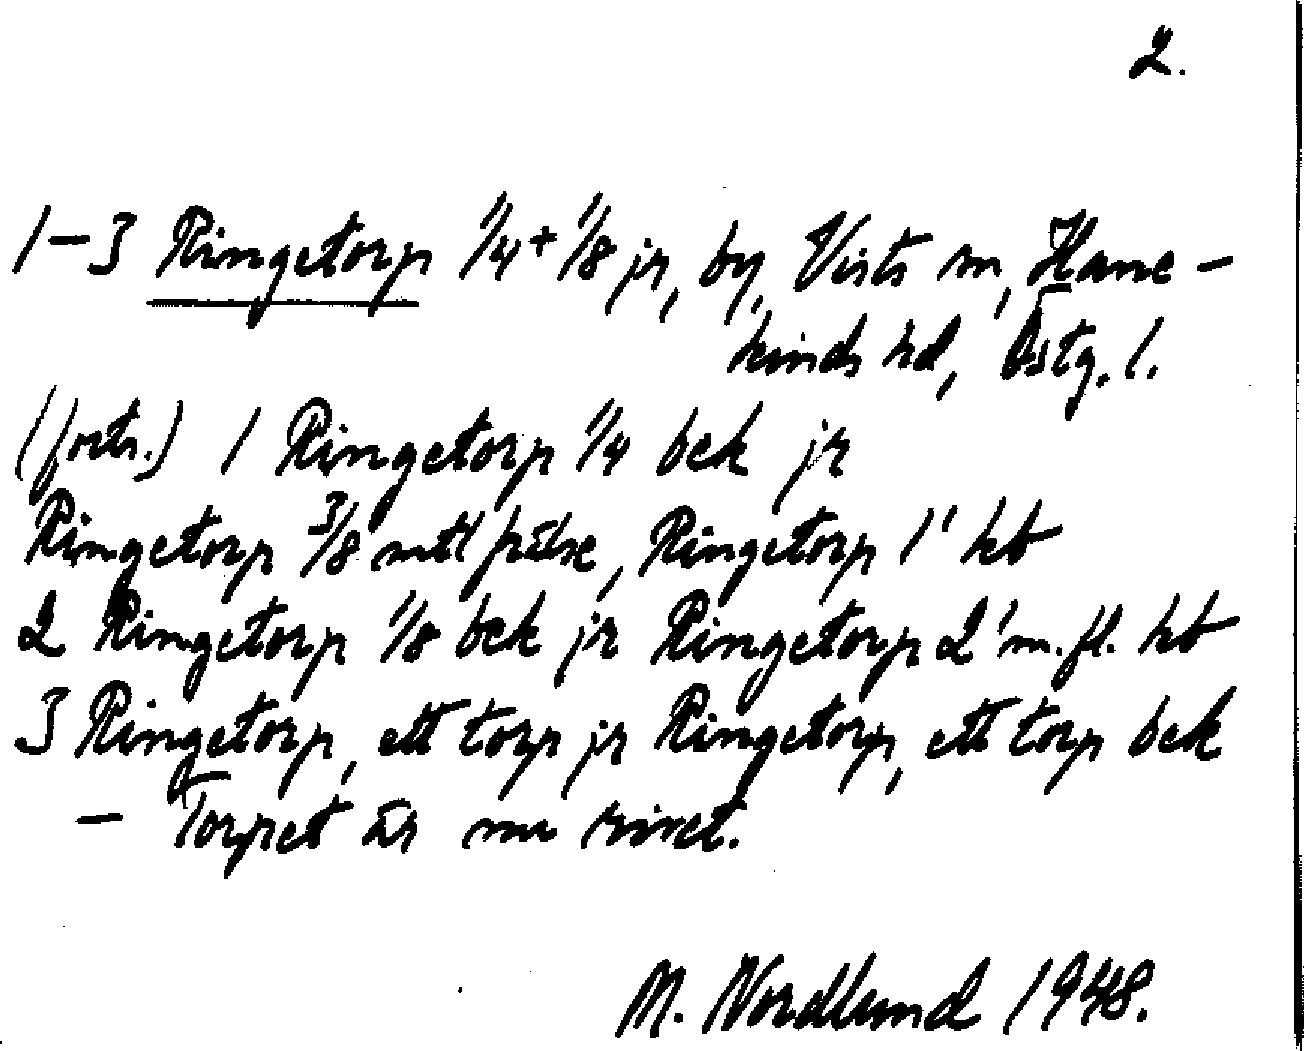 2.
1-3 Ringetorp 1/4 + 1/8 jr, by, Vists sn, Hane-
kinds hd, Östg. l.
(forts.) 1 Ringetorp 1/4 bek jr
Ringetorp 3/8 mtl frälse, Ringetorp 1¹ kb
2 Ringetorp 1/8 bek jr Ringetorp 2¹ m. fl. kb
3 Ringetorp, ett torp jr Ringetorp, ett torp bek
- Torpet är nu rivet.
M. Nordlund 1948.